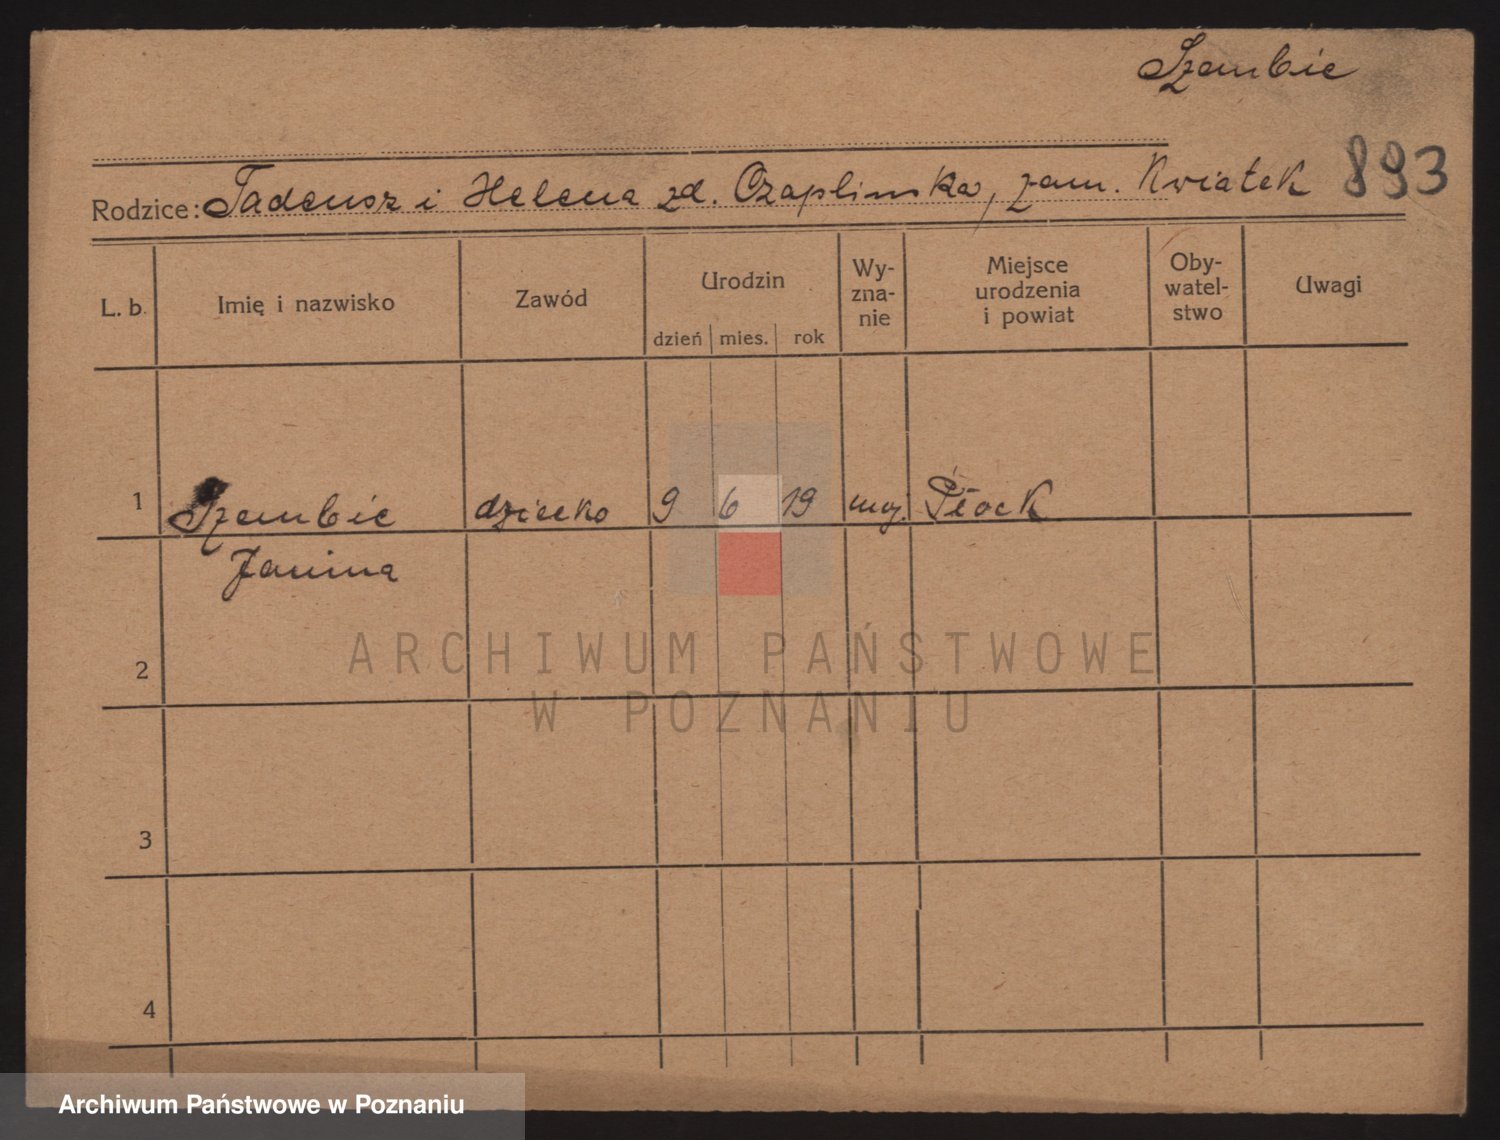 Szembic
Rodzice: Tadeusz i Helena zd. Czaplinska, zam. Kwiatek 893
L. b. Imię i nazwisko Zawód Urodzin Wyzna-nie Miejsce urodzenia i powiat Oby-watel-stwo Uwagi
dzień mies. rok
1 Szembic dziecko 9 6 19 moj. Płock
Janina
2
ARCHIWUM PAŃSTWOWE
W POZNANIU
3
4
Archiwum Państwowe w Poznaniu